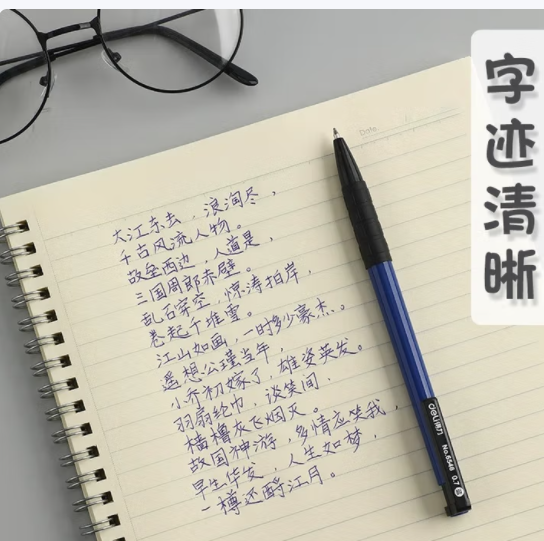 字迹清晰
Date
大江东去，浪淘尽，
千古风流人物。
故垒西边，人道是，
三国周郎赤壁。
乱石穿空，惊涛拍岸，
卷起千堆雪。
江山如画，一时多少豪杰。
遥想公瑾当年，
小乔初嫁了，雄姿英发。
羽扇纶巾，谈笑间，
樯橹灰飞烟灭。
故国神游，多情应笑我，
早生华发，人生如梦，
一樽还酹江月。
deli得力 No.6546 0.7